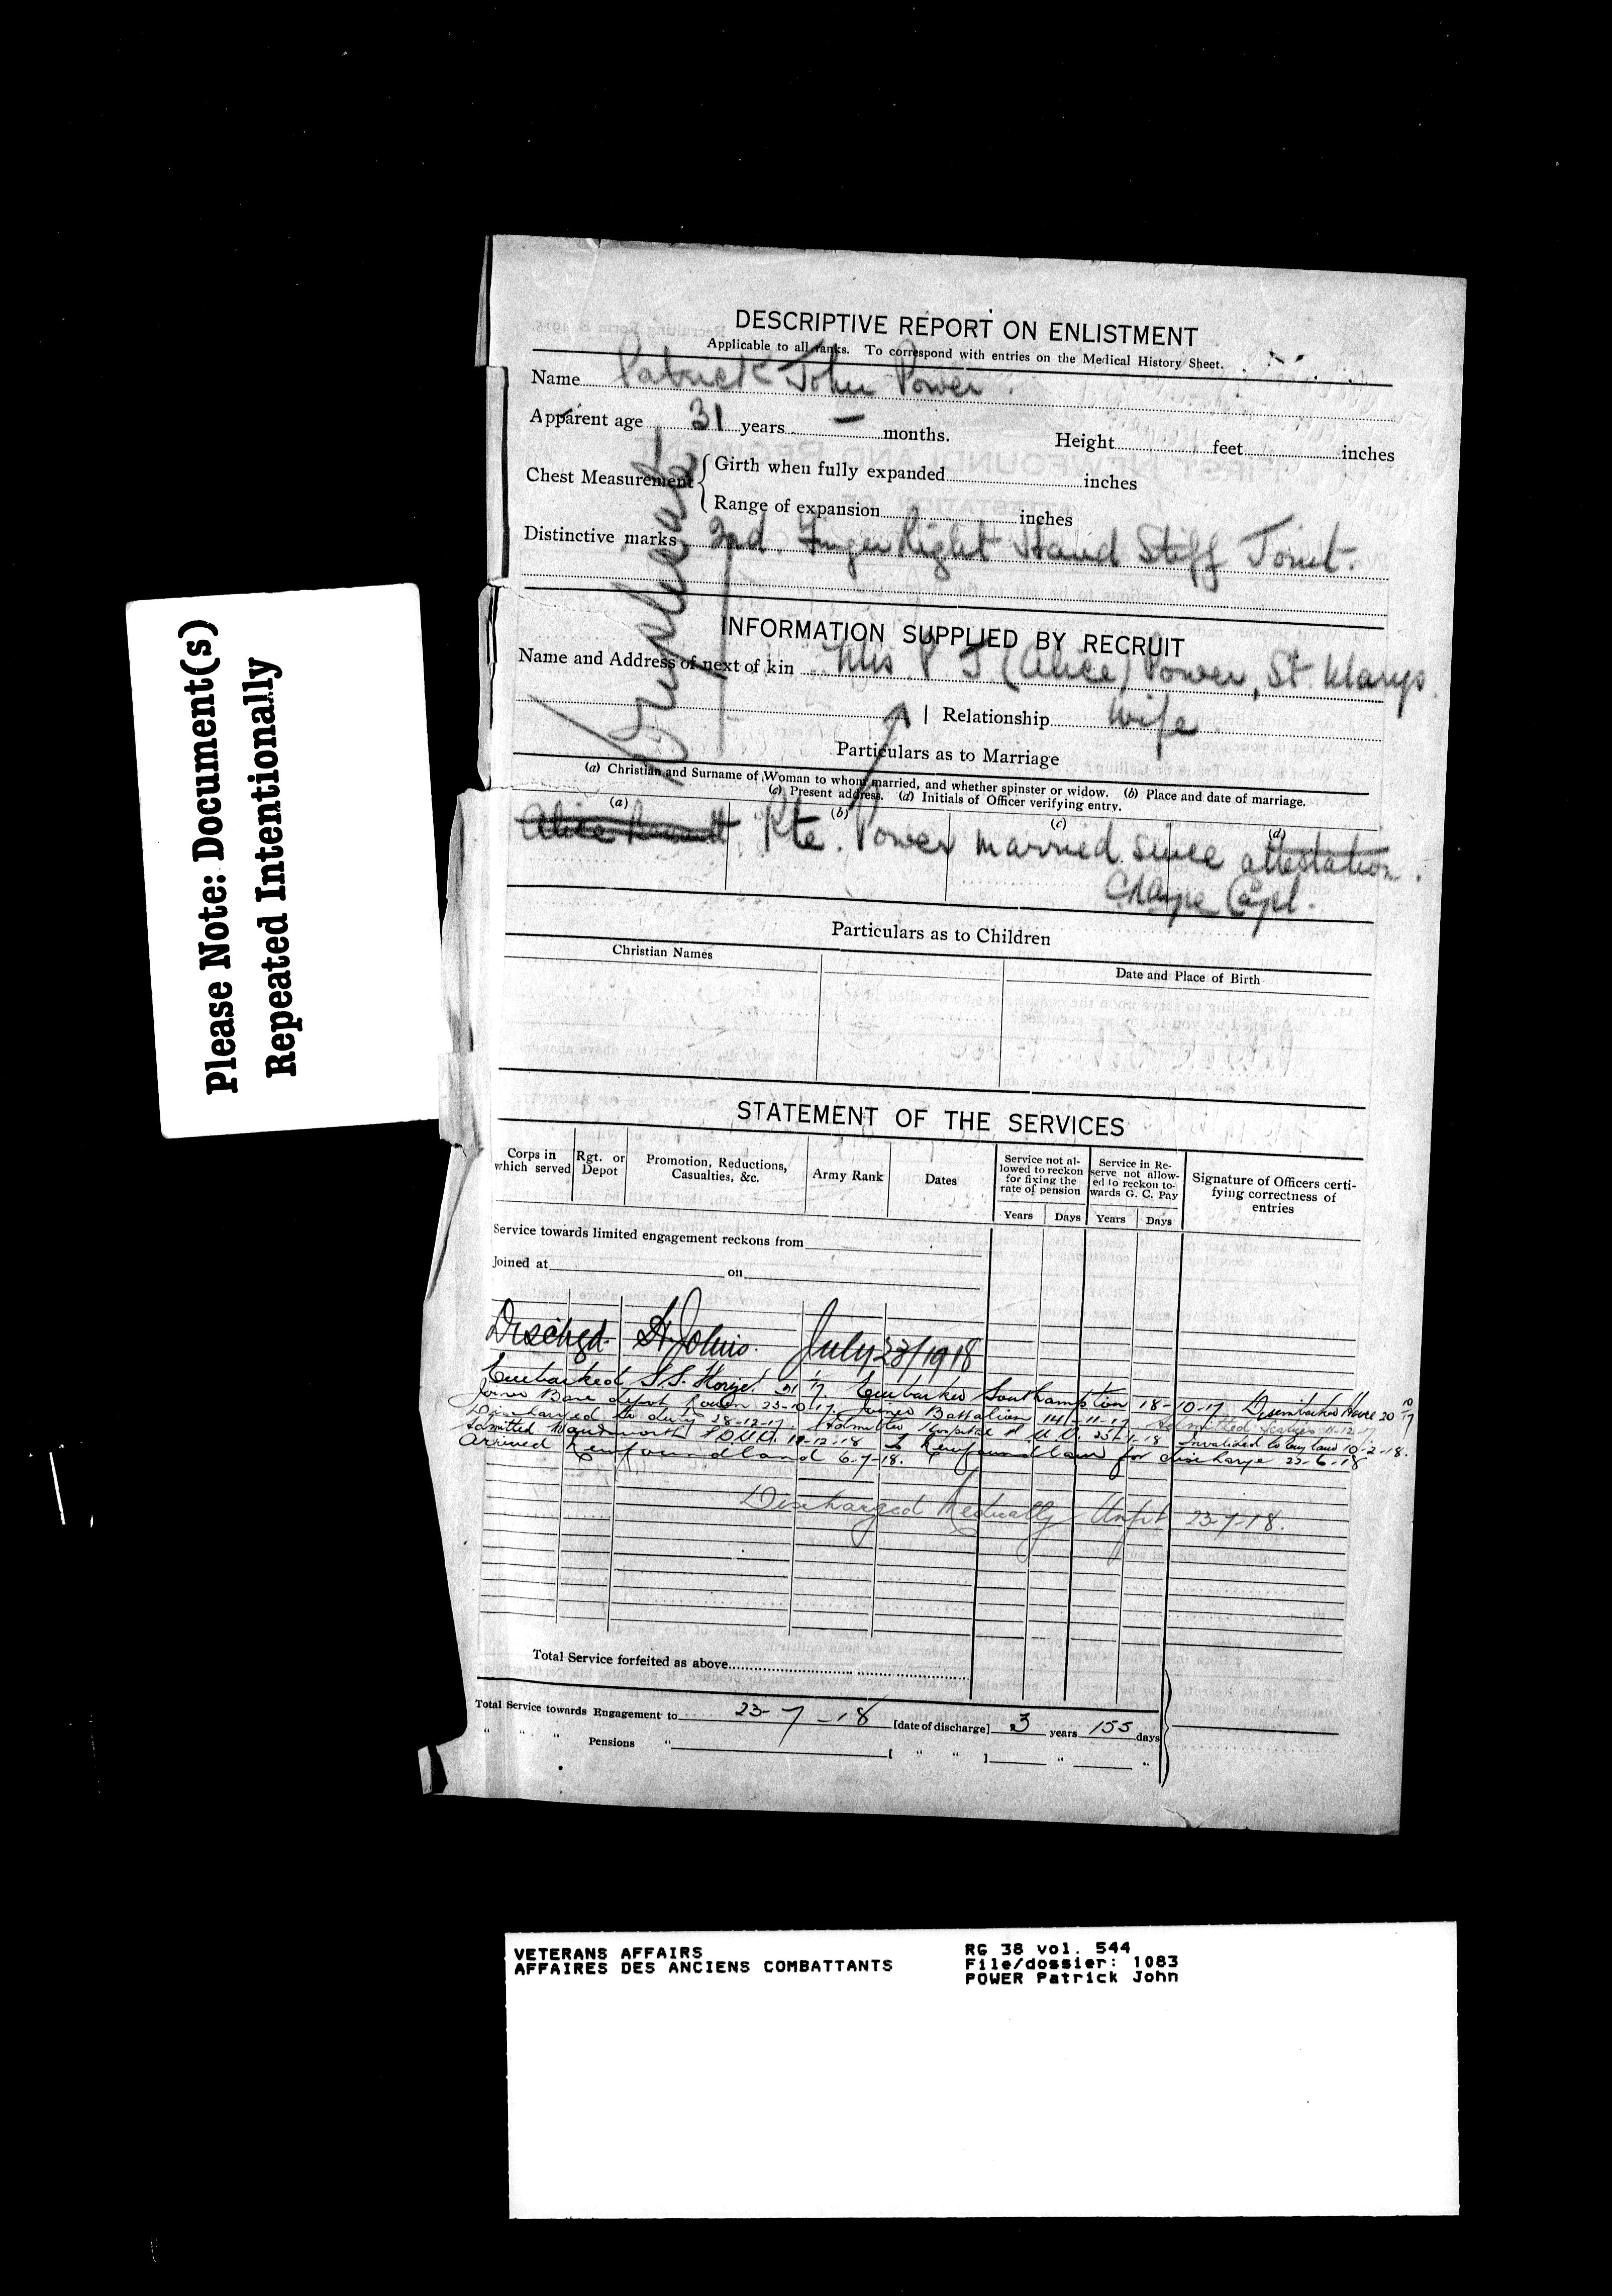 Please Note: Document(s)
Repeated Intentionally
DESCRIPTIVE REPORT ON ENLISTMENT
Applicable to all ranks. To correspond with entries on the Medical History Sheet.
Name Patrick John Power.
Apparent age 31 years – months. Height feet inches
Chest Measurement Girth when fully expanded inches
Range of expansion inches
Distinctive marks 3rd. Finger Right Hand Stiff Joint.
INFORMATION SUPPLIED BY RECRUIT
Name and Address of next of kin Mrs P J (Alice) Power, St. Marys.
Relationship Wife
Particulars as to Marriage
(a) Christian and Surname of Woman to whom married, and whether spinster or widow. (b) Place and date of marriage.
(c) Present address. (d) Initials of Officer verifying entry.
(a) (b) (c) (d)
Alice Pte. Power married since attestation.
Capt.
Particulars as to Children
Christian Names Date and Place of Birth
STATEMENT OF THE SERVICES
Corps in which served Rgt. or Depot Promotion, Reductions, Casualties, &c. Army Rank Dates Service not allowed to reckon for fixing the rate of pension Service in Reserve not allowed to reckon towards G. C. Pay Signature of Officers certifying correctness of entries
Years Days Years Days
Service towards limited engagement reckons from
Joined at on
Dischgd. St Johns. July 23/1918
Embarked S.S. Embarked Southampton 18-10-17 Disembarked Havre 20 10/17
Joined Base depot Rouen 23-10-17. Joined Battalion 14-11-17 Admitted 11-12-17
Discharged to duty 28-12-17. Admitted Hospital 25-1-18 Invalided to England 10-2-18.
Admitted Wandsworth 18 To Newfoundland for discharge 22-6-18
Arrived Newfoundland 6-7-18.
Discharged Medically Unfit 23-7-18.
Total Service forfeited as above
Total Service towards Engagement to 23-7-18 [date of discharge] 3 years 155 days
" " " Pensions " [ " " ] " "
VETERANS AFFAIRS
AFFAIRES DES ANCIENS COMBATTANTS
RG 38 vol. 544
File/dossier: 1083
POWER Patrick John